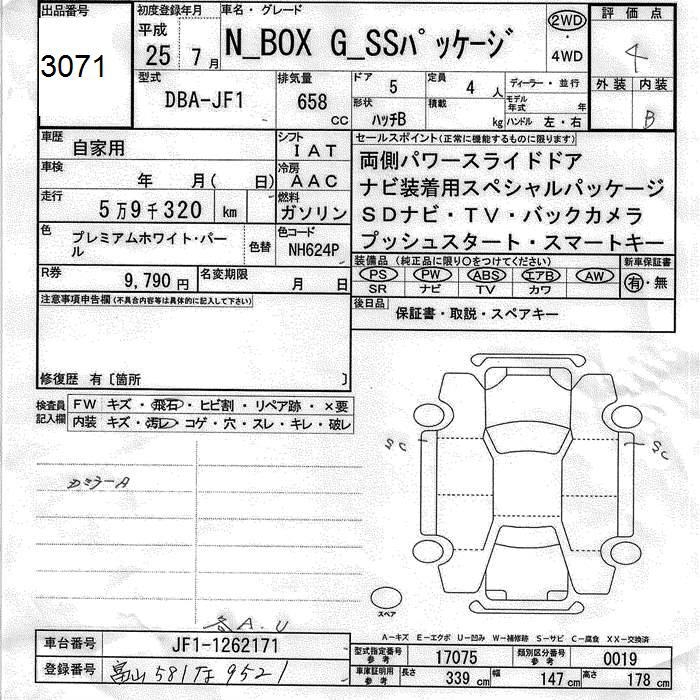 出品番号
3071
初度登録年月
平成
25 7月
車名・グレード
N_BOX G_SSパッケージ
2WD
・
4WD
評価点
4
外装 内装
B
型式
DBA-JF1
排気量
658
cc
ドア 5
定員 4 人
ディーラー・並行
形状 ハッチB
積載 kg
モデル年式 年
ハンドル 左・右
車歴 自家用
シフト IAT
車検 年 月( 日)
冷房 AAC
走行 5万9千320 km
燃料 ガソリン
色 プレミアムホワイト・パール
色替
色コード NH624P
R券 9,790円
名変期限 月 日
セールスポイント(正常に機能するものに限ります)
両側パワースライドドア
ナビ装着用スペシャルパッケージ
SDナビ・TV・バックカメラ
プッシュスタート・スマートキー
装備品(純正品に限り○をつけてください)
新車保証書
PS PW ABS エアB AW
SR ナビ TV カワ
有・無
後日品 保証書・取説・スペアキー
注意事項申告欄(不具合内容等は具体的に記入して下さい)
修復歴 有〔箇所 〕
検査員
記入欄
FW キズ・飛石・ヒビ割・リペア跡・×要
内装 キズ・汚レ・コゲ・穴・スレ・キレ・破レ
SC
SC
スペア
各A.U
A-キズ E-エクボ U-凹み W-補修跡 S-サビ C-腐食 XX-交換済
車台番号 JF1-1262171
登録番号 富山581な9521
型式指定番号 参考 17075
類別区分番号 参考 0019
車庫証明用 参考 長さ 339cm 幅 147cm 高さ 178cm